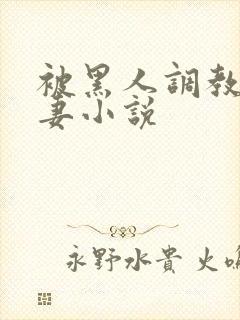 被黑人調教
妻小説
永野水貴 火